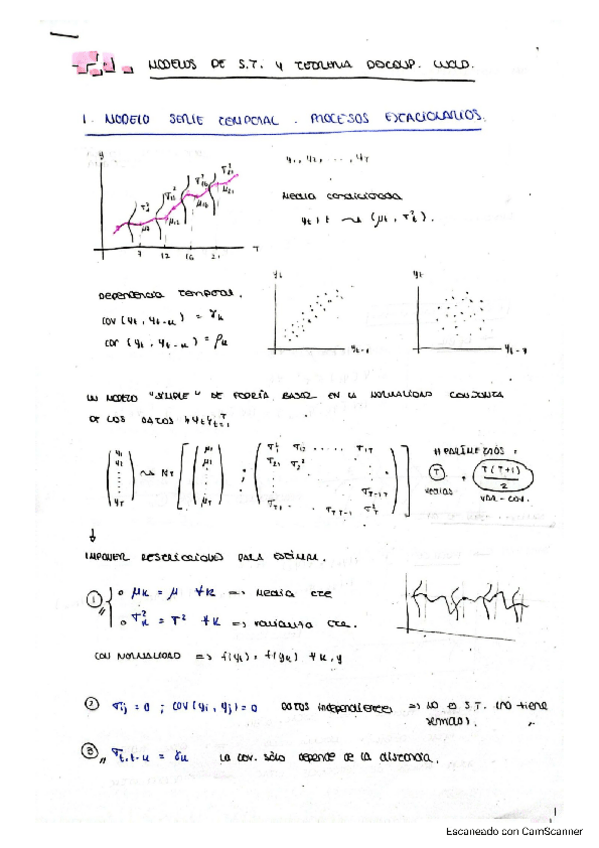 T.1. MODELOS DE S.T. Y TEOREMA DESCOMP. WOLD.
1. MODELO SERIE TEMPORAL. PROCESOS ESTACIONARIOS.
y
y₁, y₂, ..., y_T
MEDIA CONDICIONADA
y_t | t ~ (μ_t, σ²_t).
7 12 16 21 T
DEPENDENCIA TEMPORAL.
COV (y_t, y_t-k) = γ_k
COR (y_t, y_t-k) = ρ_k
y_t y_t
y_t-k y_t-k
UN MODELO "SIMPLE" SE PODRÍA BASAR EN LA NORMALIDAD CONJUNTA
DE LOS DATOS {y_t}ᵀ_t=1
(y₁ y₂ ... y_T) ~ N_T [(μ₁ μ₂ ... μ_T) ; (σ²₁ σ₁₂ ... σ₁T σ₂₁ σ²₂ ... σ_T-1T σ_T1 ... σ_T T-1 σ²_T)]
# PARÁMETROS:
T, T(T+1)/2
MEDIAS VAR-COV.
↓
IMPONER RESTRICCIONES PARA ESTIMAR.
① o μ_k = μ ∀k => MEDIA CTE
o σ²_k = σ² ∀k => VARIANZA CTE.
CON NORMALIDAD => f(y_t) = f(y_k) ∀ k, y
② σ_ij = 0 ; COV(y_i, y_j) = 0 DATOS INDEPENDIENTES => NO ES S.T. (NO TIENE
SENTIDO).
③ σ_t,t-k = γ_k LA COV. SÓLO DEPENDE DE LA DISTANCIA.
1
Escaneado con CamScanner